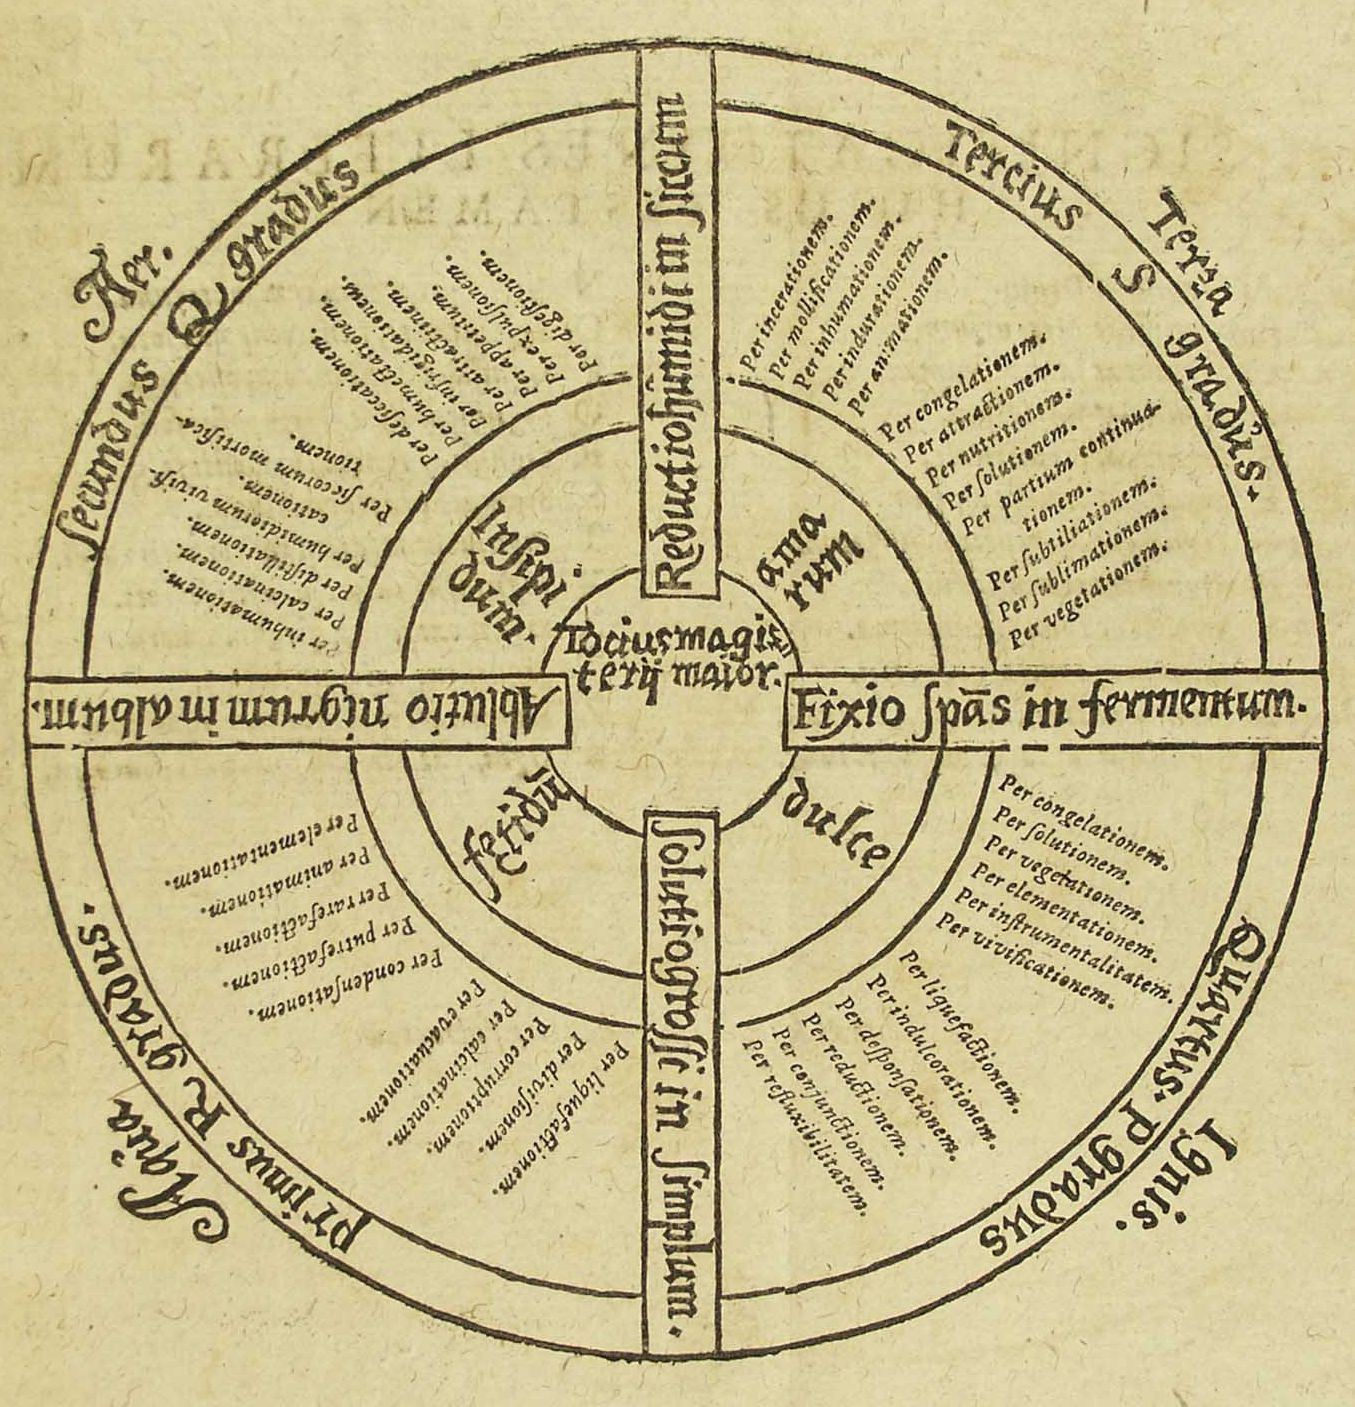 Aer.
Terza
Ignis.
Aqua
secundus Q gradus
Tercius S gradus.
Quartus. P gradus
primus R gradus.
Reductio humidi in siccum
Fixio spās in fermentum.
Solutio grossi in simplum.
Ablutio nigrum in album.
Tocius magis
terij maior.
Insipi
dum.
ama
rum
dulce
fetidum
Per inhumationem.
Per calcinationem.
Per distillationem.
Per humidiorum vivifi-
cationem.
Per siccorum mortifica-
tionem.
Per desiccationem.
Per humectationem.
Per infrigidationem.
Per attractionem.
Per appetitum.
Per expulsionem.
Per digestionem.
Per incerationem.
Per mollificationem.
Per inhumationem.
Per indurationem.
Per animationem.
Per congelationem.
Per attractionem.
Per nutritionem.
Per solutionem.
Per partium continua-
tionem.
Per subtiliationem.
Per sublimationem.
Per vegetationem.
Per congelationem.
Per solutionem.
Per vegetationem.
Per elementationem.
Per instrumentalitatem.
Per vivificationem.
Per liquefactionem.
Per indulcorationem.
Per desponsationem.
Per reductionem.
Per conjunctionem.
Per refluxibilitatem.
Per liquefactionem.
Per divisionem.
Per corruptionem.
Per calcinationem.
Per evacuationem.
Per condensationem.
Per putrefactionem.
Per rarefactionem.
Per animationem.
Per elementationem.